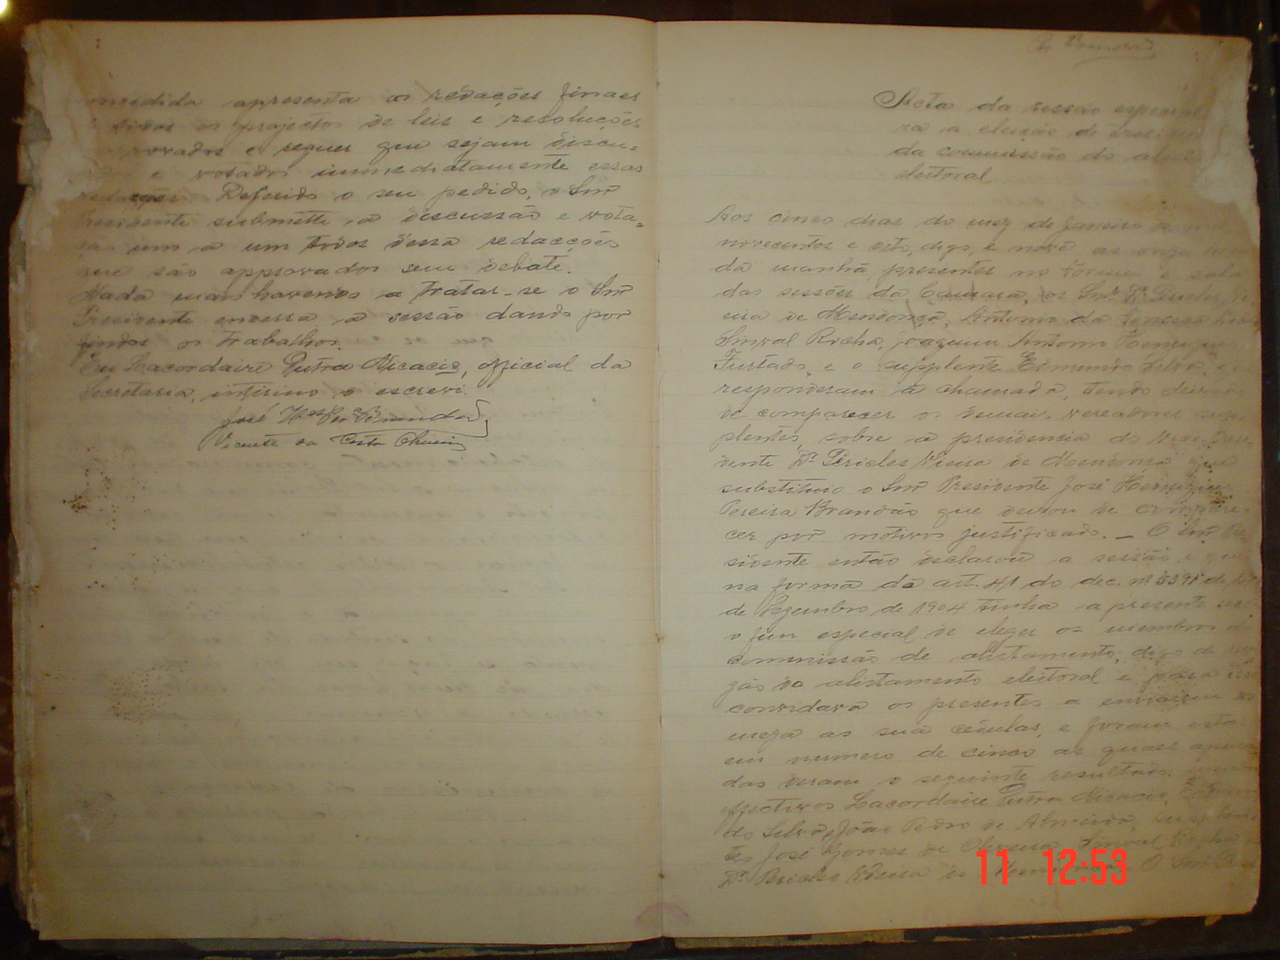 apresenta as redações finaes
os projectos de leis e resoluções
e requer que sejam discu-
e votados immediatamente essas
redacções. Deferido o seu pedido, o Snr
Presidente submette á discussão e vota-
um a um todos dessa redacções
que são approvados sem debate.
Nada mais havendo a tratar-se o Snr
Presidente encerra a sessão dando por
findos os trabalhos.
Eu Lacordaire Dutra Nicacio, official da
Secretaria, interino o escrevi.
José Brandão
Vicente da Costa
Brandão
Acta da sessão especial
ra a eleição de
da commissão do alista
eleitoral
Aos cinco dias do mez de Janeiro de mil
novecentos e oito, digo, e nove as onze
da manhã, presentes no e sala
das sessões da Camara, os Snrs. Dr. Pericles Vi
eira de Mendonça, Antonio da
Sinval Rocha, Joaquim Antonio Henriques
Furtado, e o supplente Edmundo Silva, q
responderam á chamada, tendo deixado
de comparecer os demais vereadores sup-
plentes, sobre a presidencia do Vice-Presi
dente Dr. Pericles Vieira de Mendonça que
substituio o Snr Presidente José Henriques
Pereira Brandão que deixou de compare-
cer por motivos justificado. — O Snr Pre
sidente então declarou a sessão e que
na forma da art. 41 do dec. nº de
de Dezembro de 1904 tinha a presente
o fim especial de eleger os membros da
commissão de alistamento, digo de
do alistamento eleitoral e para isso
convidava os presentes a enviarem á
meza as sua cedulas, e foram estas
em numero de cinco as quaes apura
das deram o seguinte resultado:
effectivos Lacordaire Dutra Nicacio, Edmun
do Silva, João Pedro de Almeida, supplen
tes José Gomes de Oliveira, Sinval Rocha
Dr. Pericles Vieira de O Snr
11 12:53